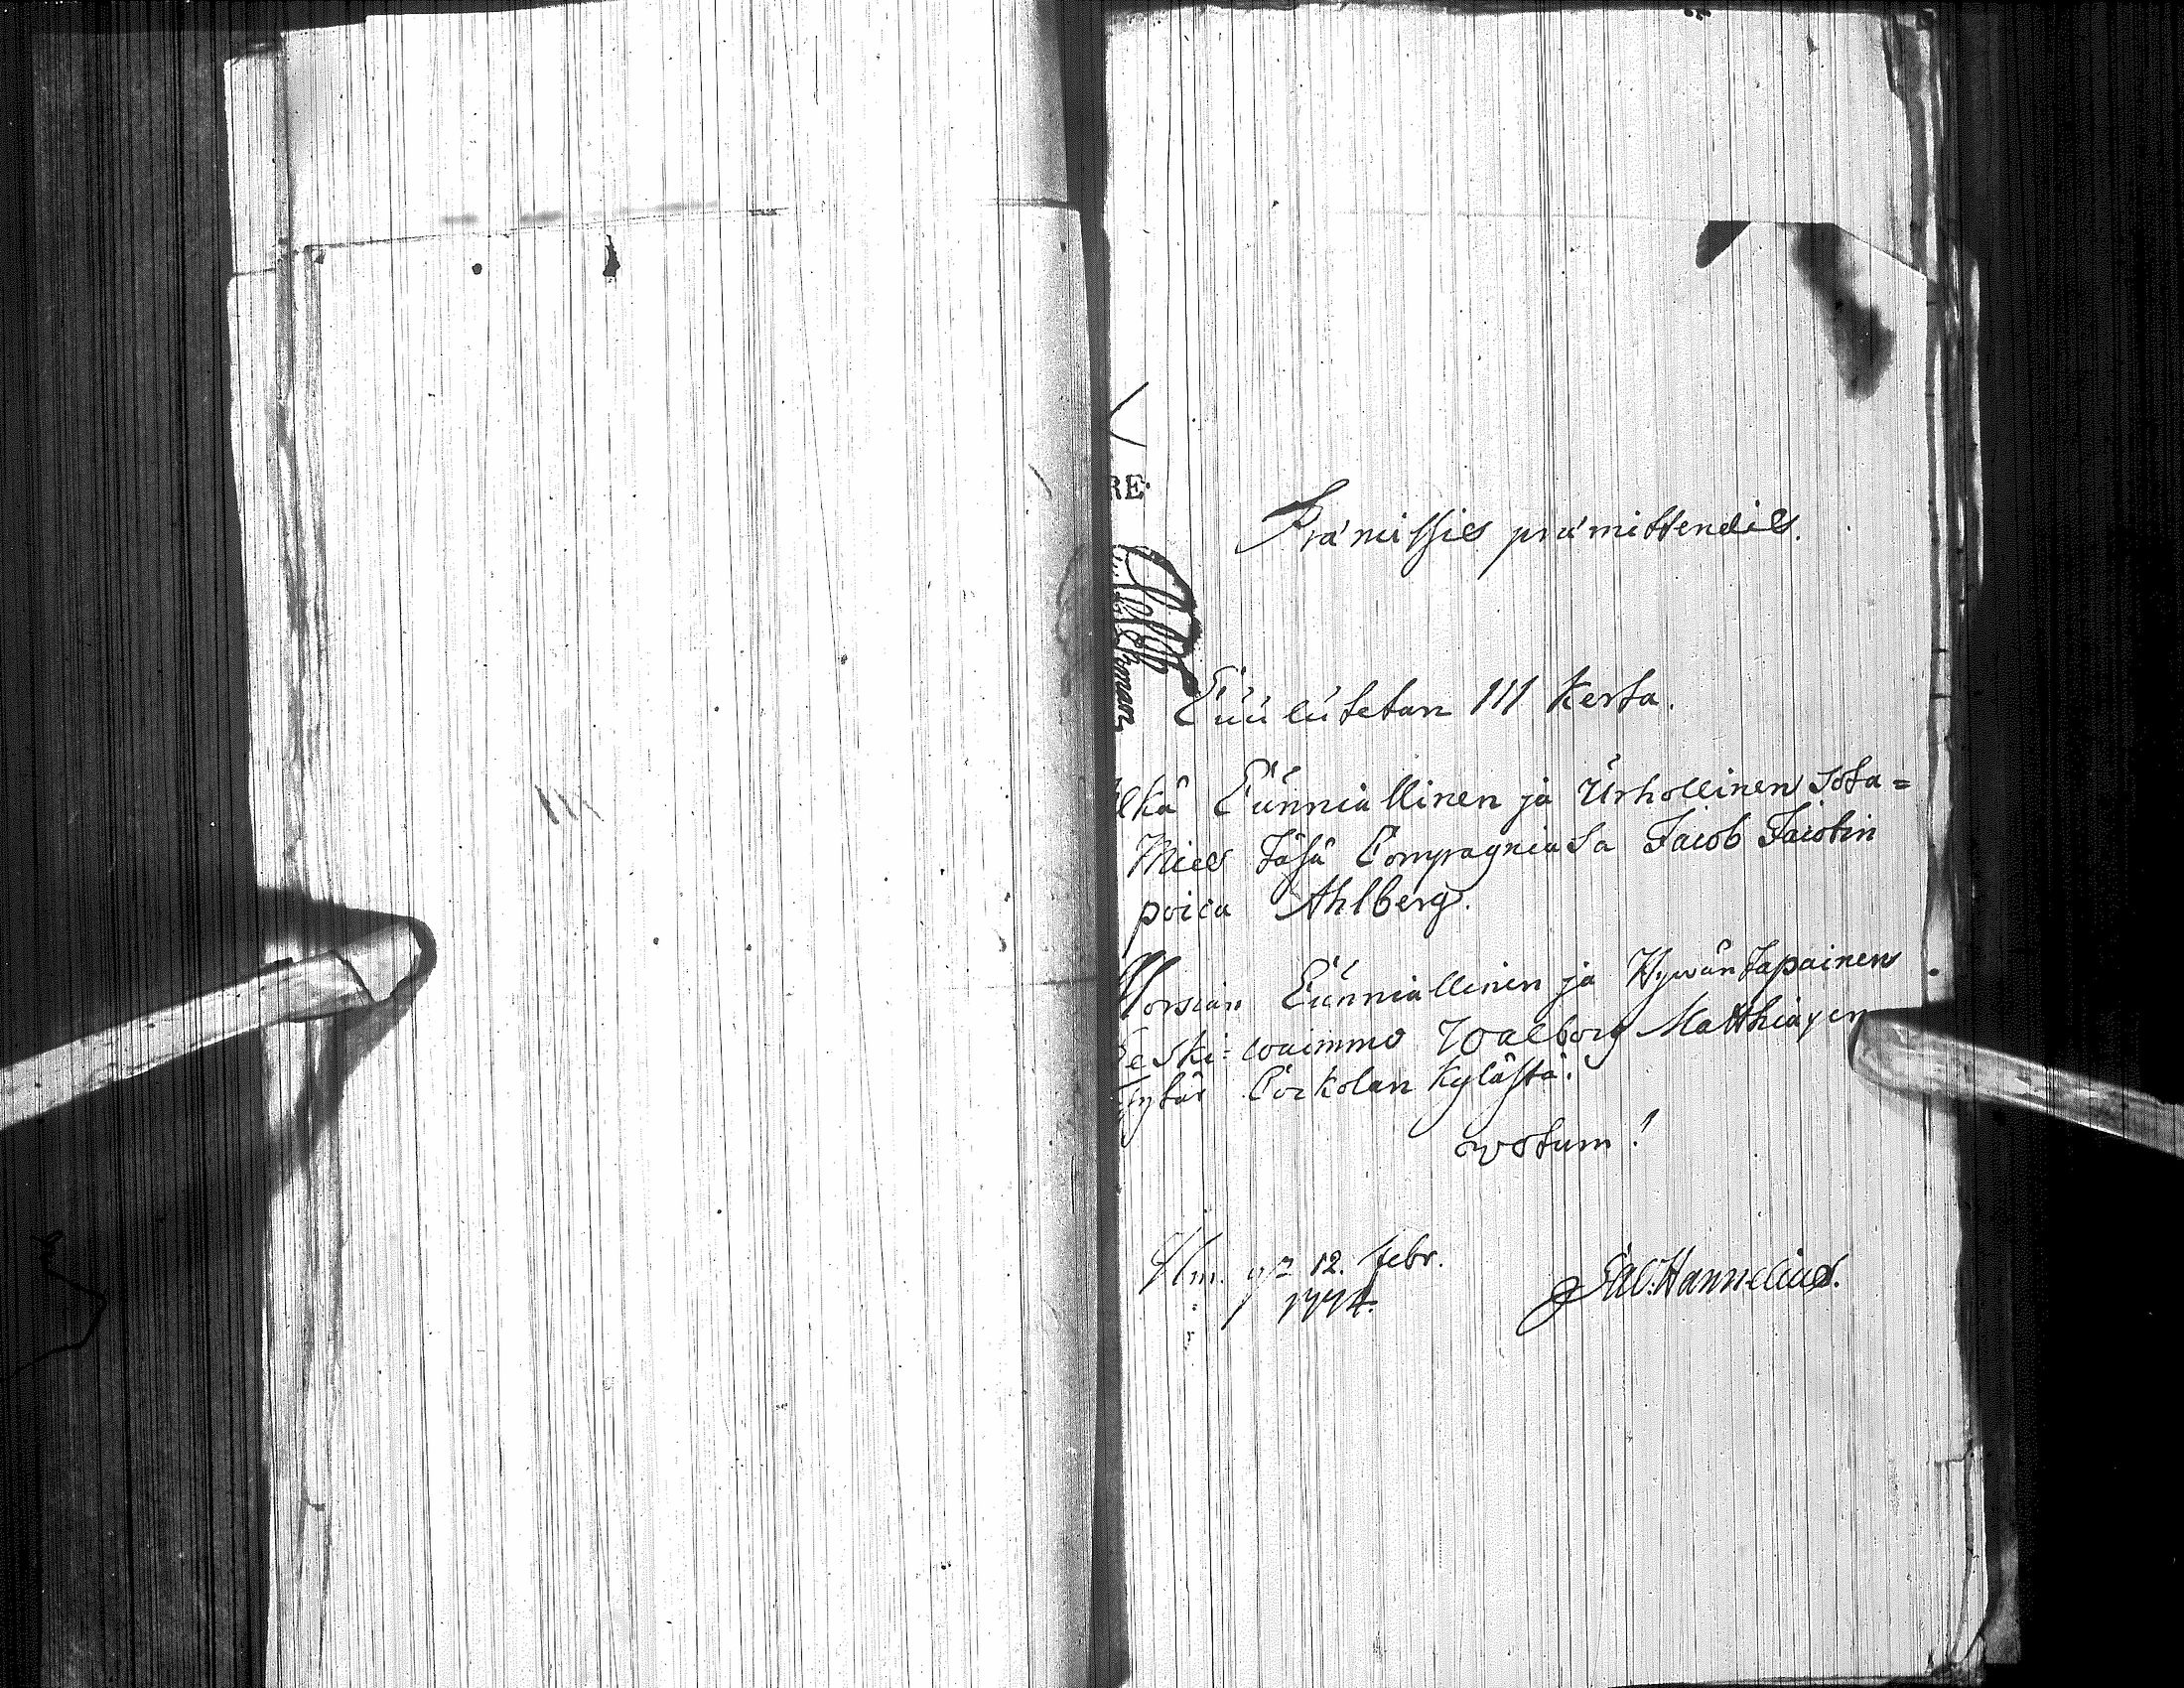 RE
Præmissis præmittendis.
Cuulutetan III Kerta.
Cunniallinen ja Urhollinen Sota=
Mies täsä Compagniasa Jacob Jacobin
poica Ahlberg.
Morsian Cunniallinen ja Hywäntapainen
Leski=waimmo Walborg Matthiaxen
tytär Corkolan Kylästä.
votum!
12. Febr.
1774.
Hannelius.
III